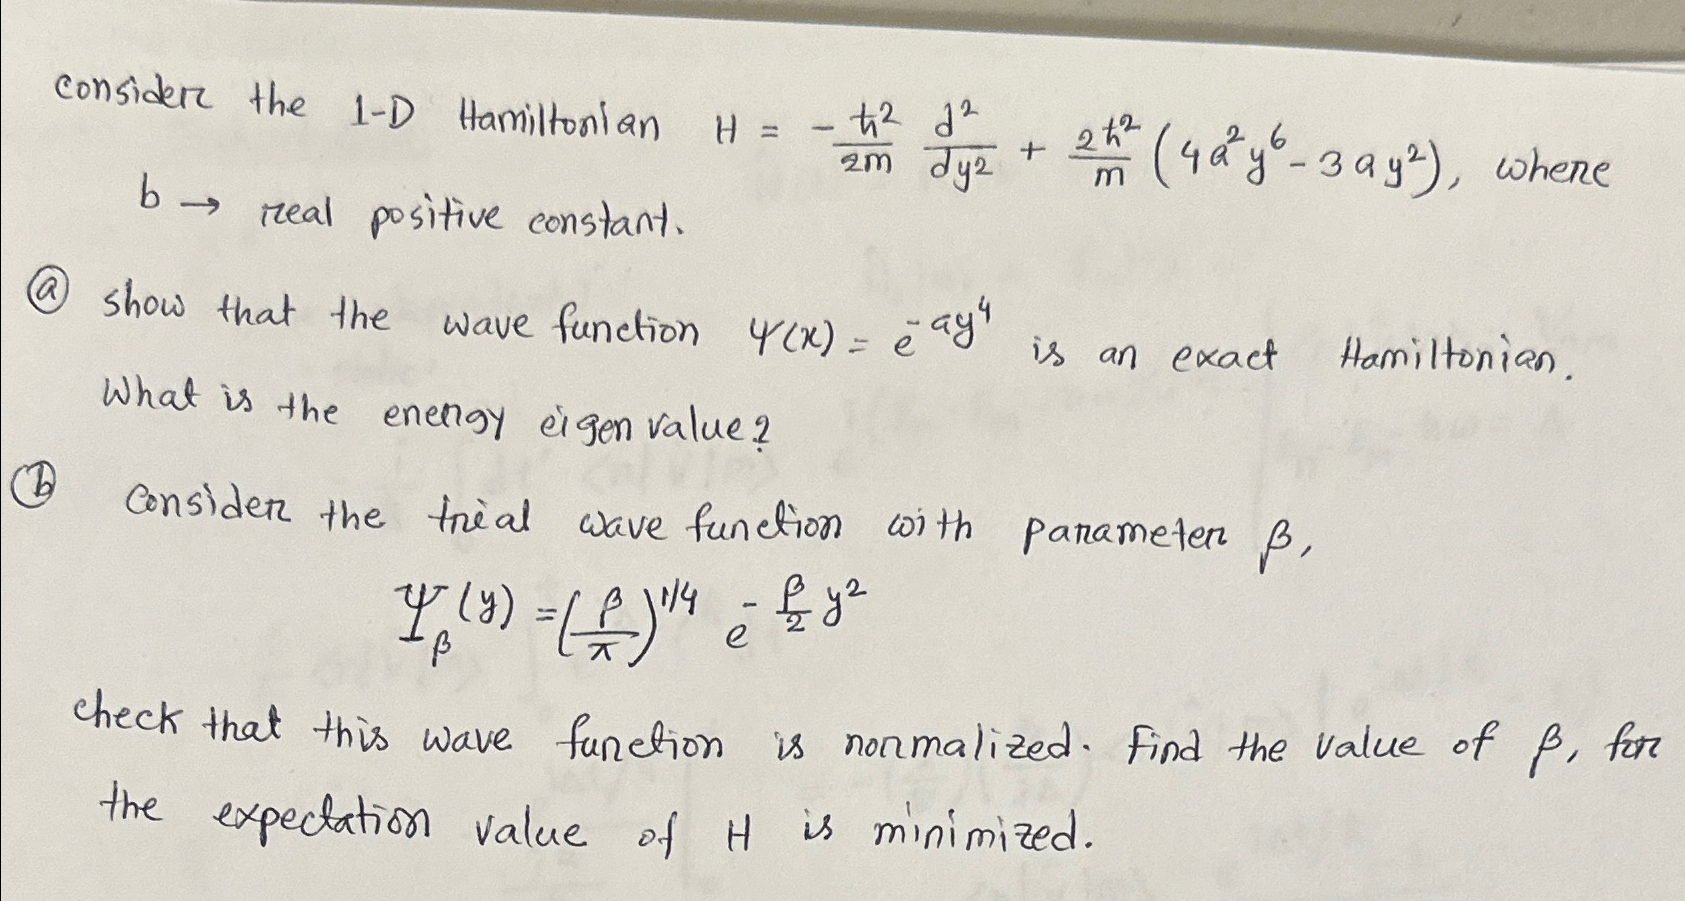 consider the 1-D Hamiltonian H = -ħ²/2m d²/dy² + 2ħ²/m (4a²y⁶ - 3ay²), where
b → real positive constant.
(a) show that the wave function ψ(x) = e^{-ay⁴} is an exact Hamiltonian.
What is the energy eigen value?
(b) Consider the trial wave function with parameter β,
Ψ_β(y) = (β/π)^{1/4} e^{-β/2 y²}
check that this wave function is normalized. Find the value of β, for
the expectation value of H is minimized.